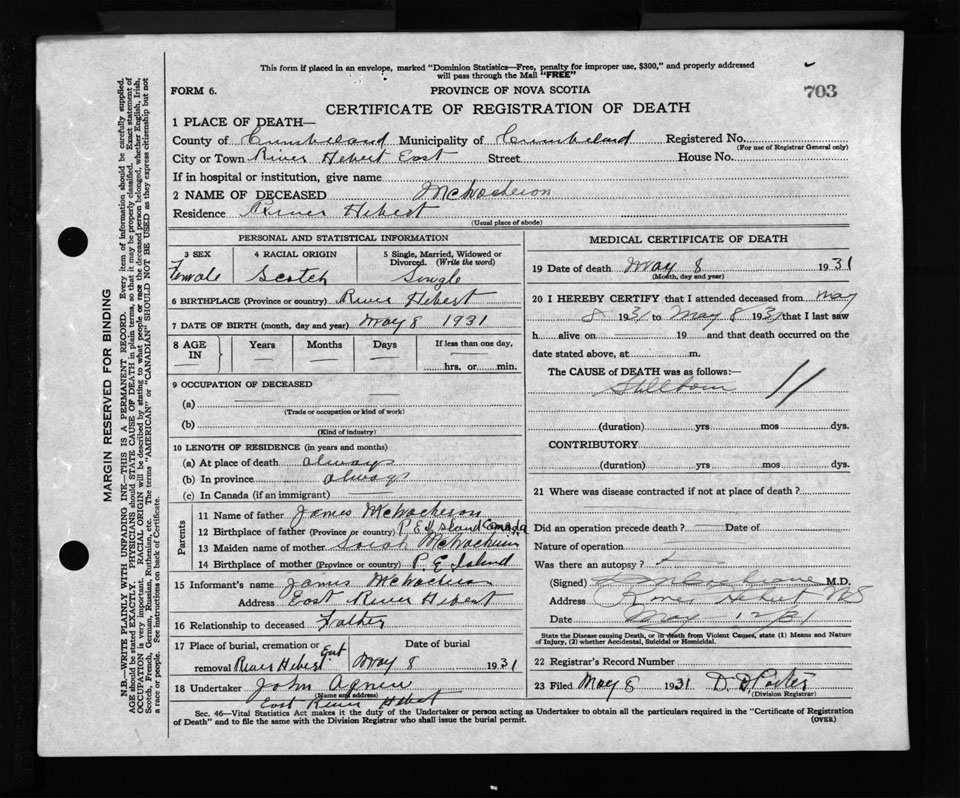 This form if placed in an envelope, marked "Dominion Statistics—Free, penalty for improper use, $300," and properly addressed
will pass through the Mail "FREE"
FORM 6. PROVINCE OF NOVA SCOTIA 703
CERTIFICATE OF REGISTRATION OF DEATH
1 PLACE OF DEATH—
County of Cumbeland Municipality of Cumbeland Registered No.
(For use of Registrar General only)
City or Town River Hebert East Street House No.
If in hospital or institution, give name
2 NAME OF DECEASED McWacheron
Residence River Hebert
(Usual place of abode)
PERSONAL AND STATISTICAL INFORMATION
3 SEX 4 RACIAL ORIGIN 5 Single, Married, Widowed or
Divorced. (Write the word)
Female Scotch Single
6 BIRTHPLACE (Province or country) River Hebert
7 DATE OF BIRTH (month, day and year) May 8 1931
8 AGE IN Years Months Days If less than one day,
hrs. or min.
9 OCCUPATION OF DECEASED
(a)
(Trade or occupation or kind of work)
(b)
(Kind of industry)
10 LENGTH OF RESIDENCE (in years and months)
(a) At place of death always
(b) In province always
(c) In Canada (if an immigrant)
Parents
11 Name of father James McWacheron
12 Birthplace of father (Province or country) P.E Island Canada
13 Maiden name of mother Sarah
14 Birthplace of mother (Province or country) P. E Island
15 Informant's name James
Address East River Hebert
16 Relationship to deceased Father
17 Place of burial, cremation or removal River Hebert East Date of burial May 8 1931
18 Undertaker John Agnew
(Name and address)
East River Hebert
MEDICAL CERTIFICATE OF DEATH
19 Date of death May 8 1931
(Month, day and year)
20 I HEREBY CERTIFY that I attended deceased from May
8 1931 to May 8 1931 that I last saw
h alive on 19 and that death occurred on the
date stated above, at m.
The CAUSE of DEATH was as follows:—
Stillborn 11
(duration) yrs mos dys.
CONTRIBUTORY
(duration) yrs mos dys.
21 Where was disease contracted if not at place of death?
Did an operation precede death? Date of
Nature of operation
Was there an autopsy?
(Signed) M.D.
Address River Hebert NS
Date May 12/31
State the Disease causing Death, or in death from Violent Causes, state (1) Means and Nature
of Injury, (2) whether Accidental, Suicidal or Homicidal.
22 Registrar's Record Number
23 Filed May 8 1931 D. D Porter
(Division Registrar)
Sec. 46—Vital Statistics Act makes it the duty of the Undertaker or person acting as Undertaker to obtain all the particulars required in the "Certificate of Registration
of Death" and to file the same with the Division Registrar who shall issue the burial permit. (OVER)
MARGIN RESERVED FOR BINDING
N.B.—WRITE PLAINLY WITH UNFADING INK—THIS IS A PERMANENT RECORD. Every item of information should be carefully supplied.
AGE should be stated EXACTLY. PHYSICIANS should STATE CAUSE OF DEATH in plain terms, so that it may be properly classified. Exact statement of
OCCUPATION is very important. RACIAL ORIGIN will be described by stating to what people or race the deceased person belonged, whether English, Irish,
Scotch, French, German, Russian, Ruthenian, etc. The terms "AMERICAN" or "CANADIAN" SHOULD NOT BE USED as they express citizenship but not
a race or people. See instructions on back of Certificate.